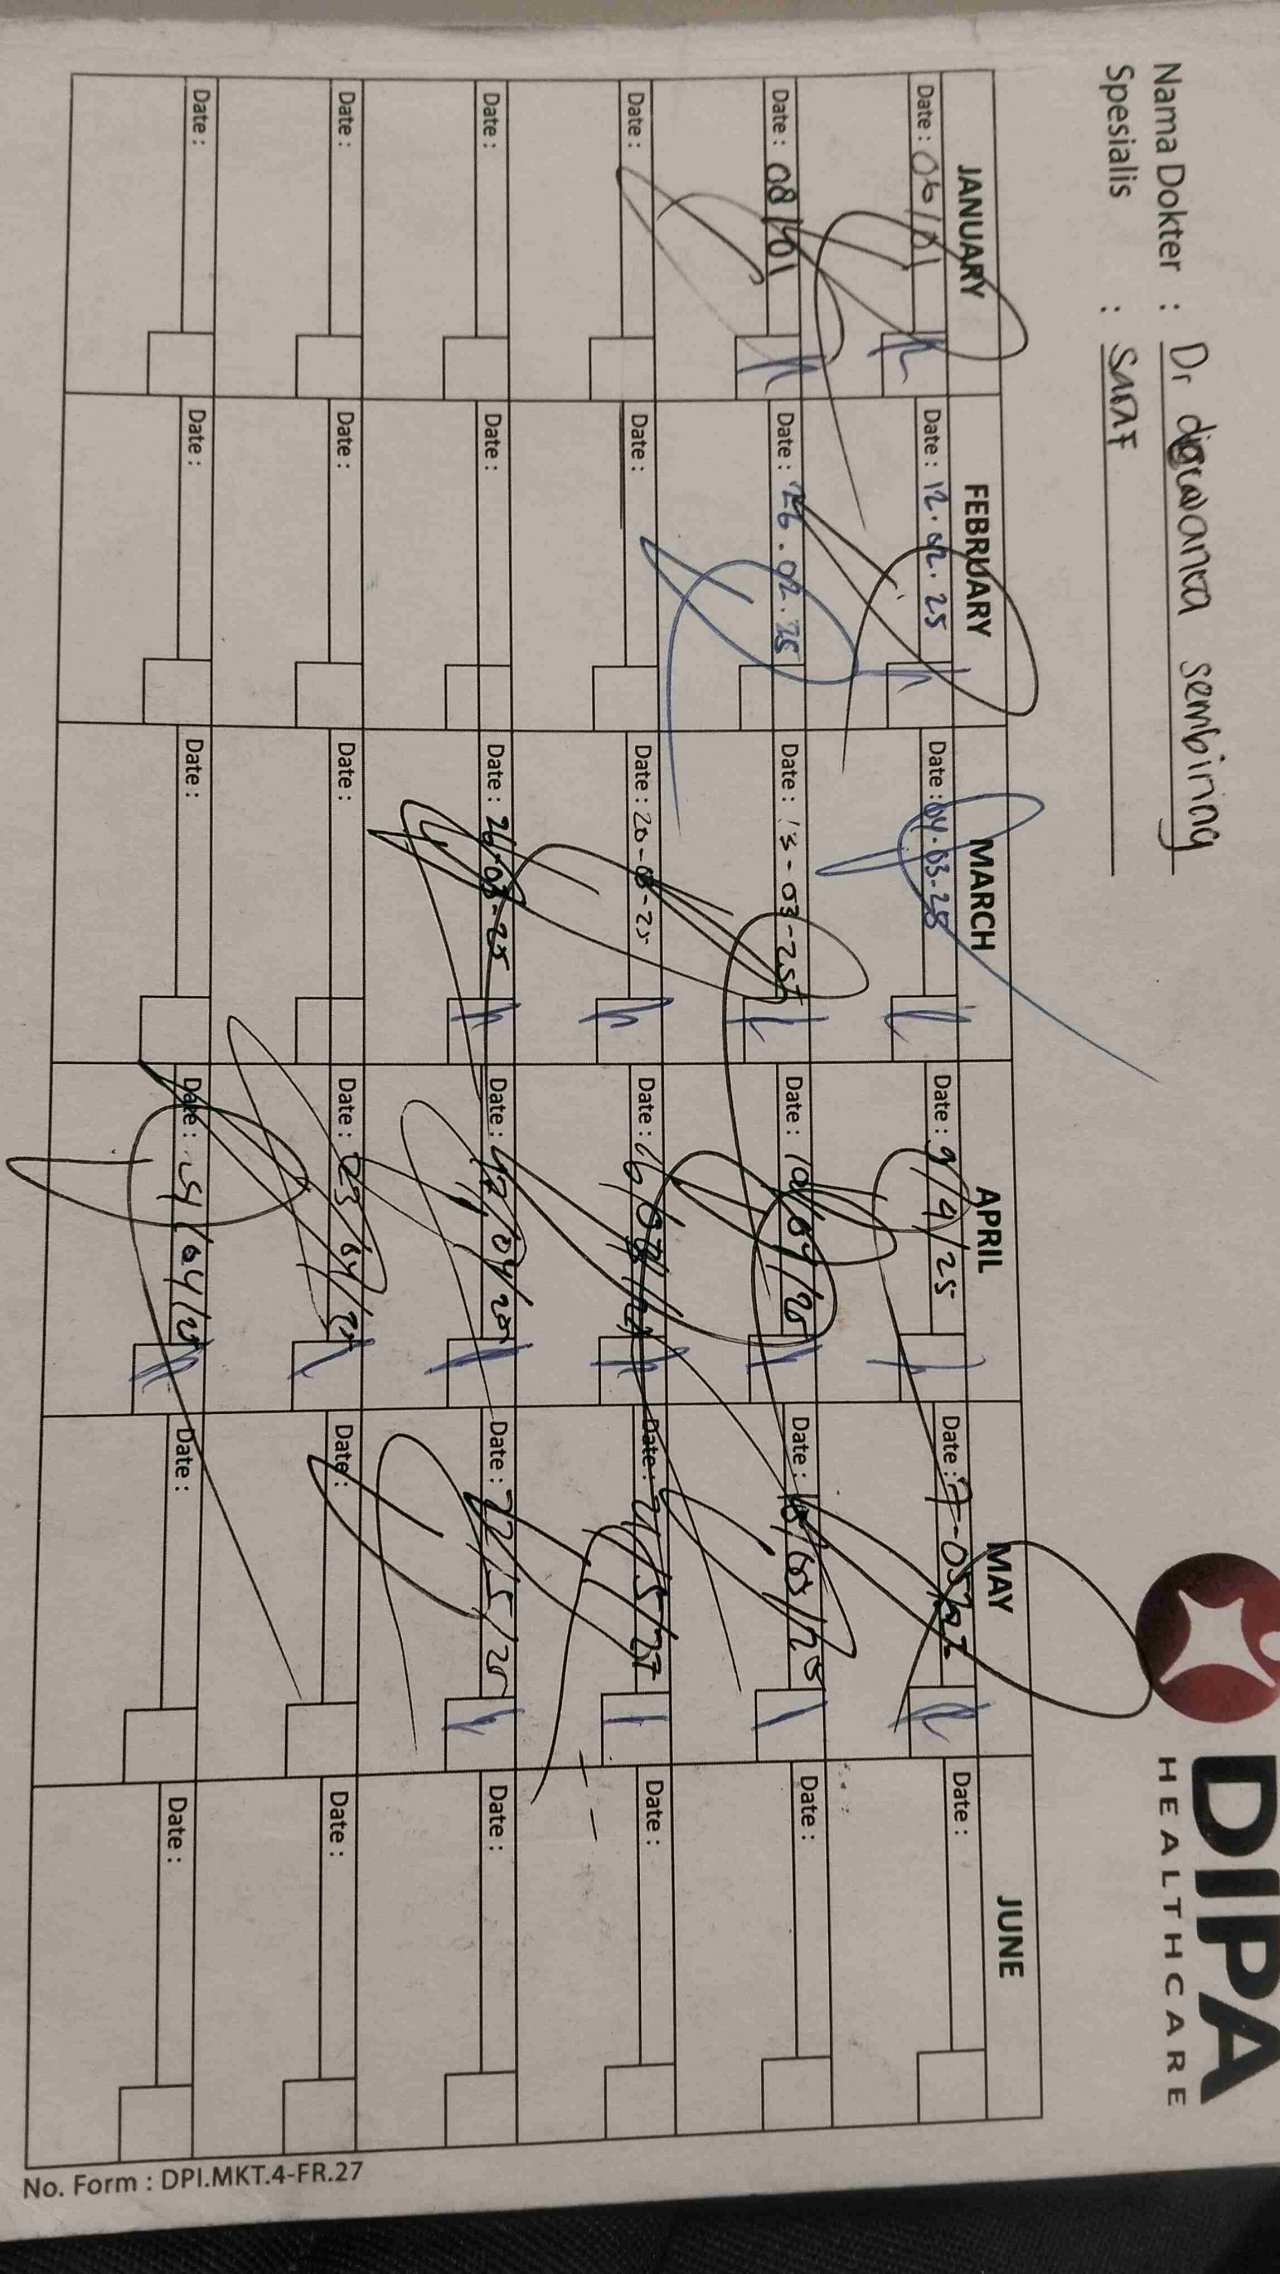 DIPA
HEALTHCARE
Nama Dokter : Dr sembiring
Spesialis : Saraf
JANUARY FEBRUARY MARCH APRIL MAY JUNE
Date : 06/01 Date : 12.02.25 Date : 04.03.25 Date : 9/4/25 Date : Date :
Date : 08/01 Date : 26.02.25 Date : 13-03-25 Date : 10/04/25 Date : Date :
Date : Date : Date : 20-03-25 Date : Date : Date :
Date : Date : Date : 26-03-25 Date : Date : 22/5/25 Date :
Date : Date : Date : Date : 23/04/25 Date : Date :
Date : Date : Date : Date : Date : Date :
No. Form : DPI.MKT.4-FR.27